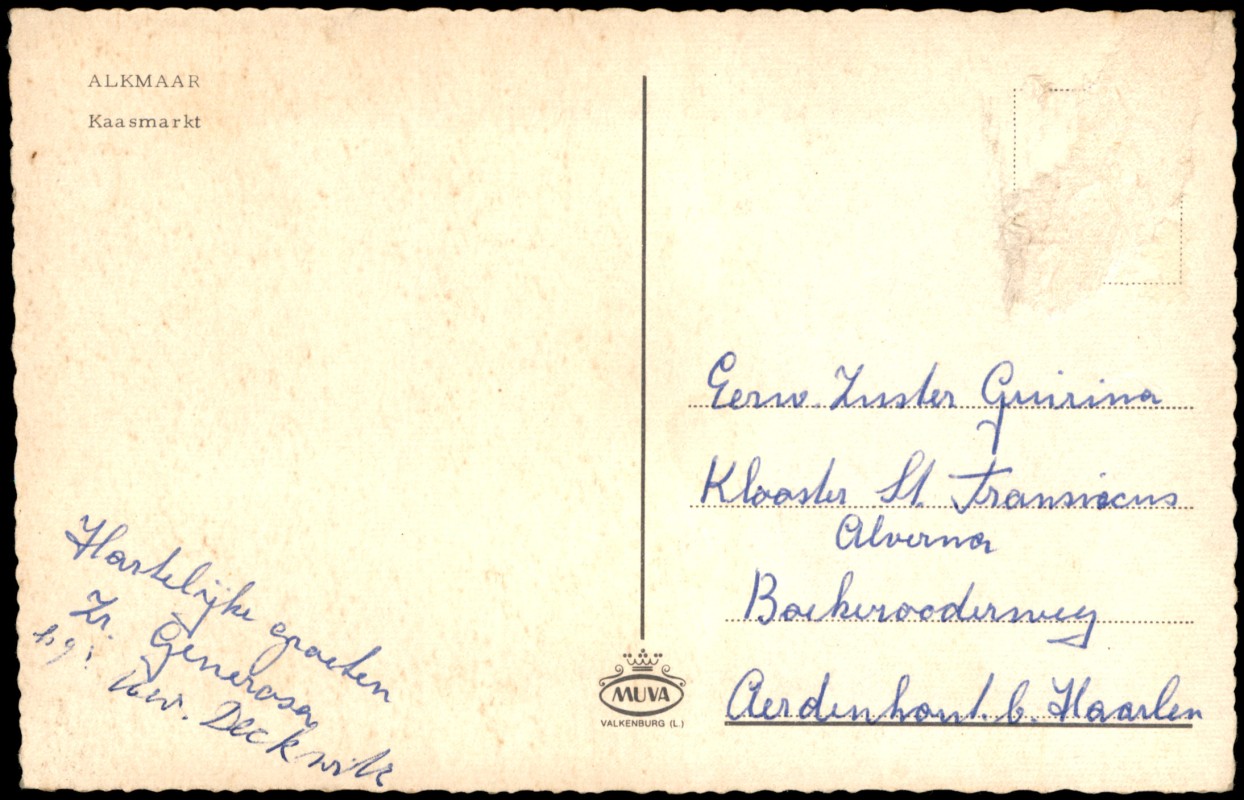 ALKMAAR
Kaasmarkt
Hartelijke groeten
Zr. Generosa
Eerw. Zuster Quirina
Klooster St. Fransiscus
Alverna
Boekeroodeweg
Aerdenhout. b. Haarlem
MUVA
VALKENBURG (L.)